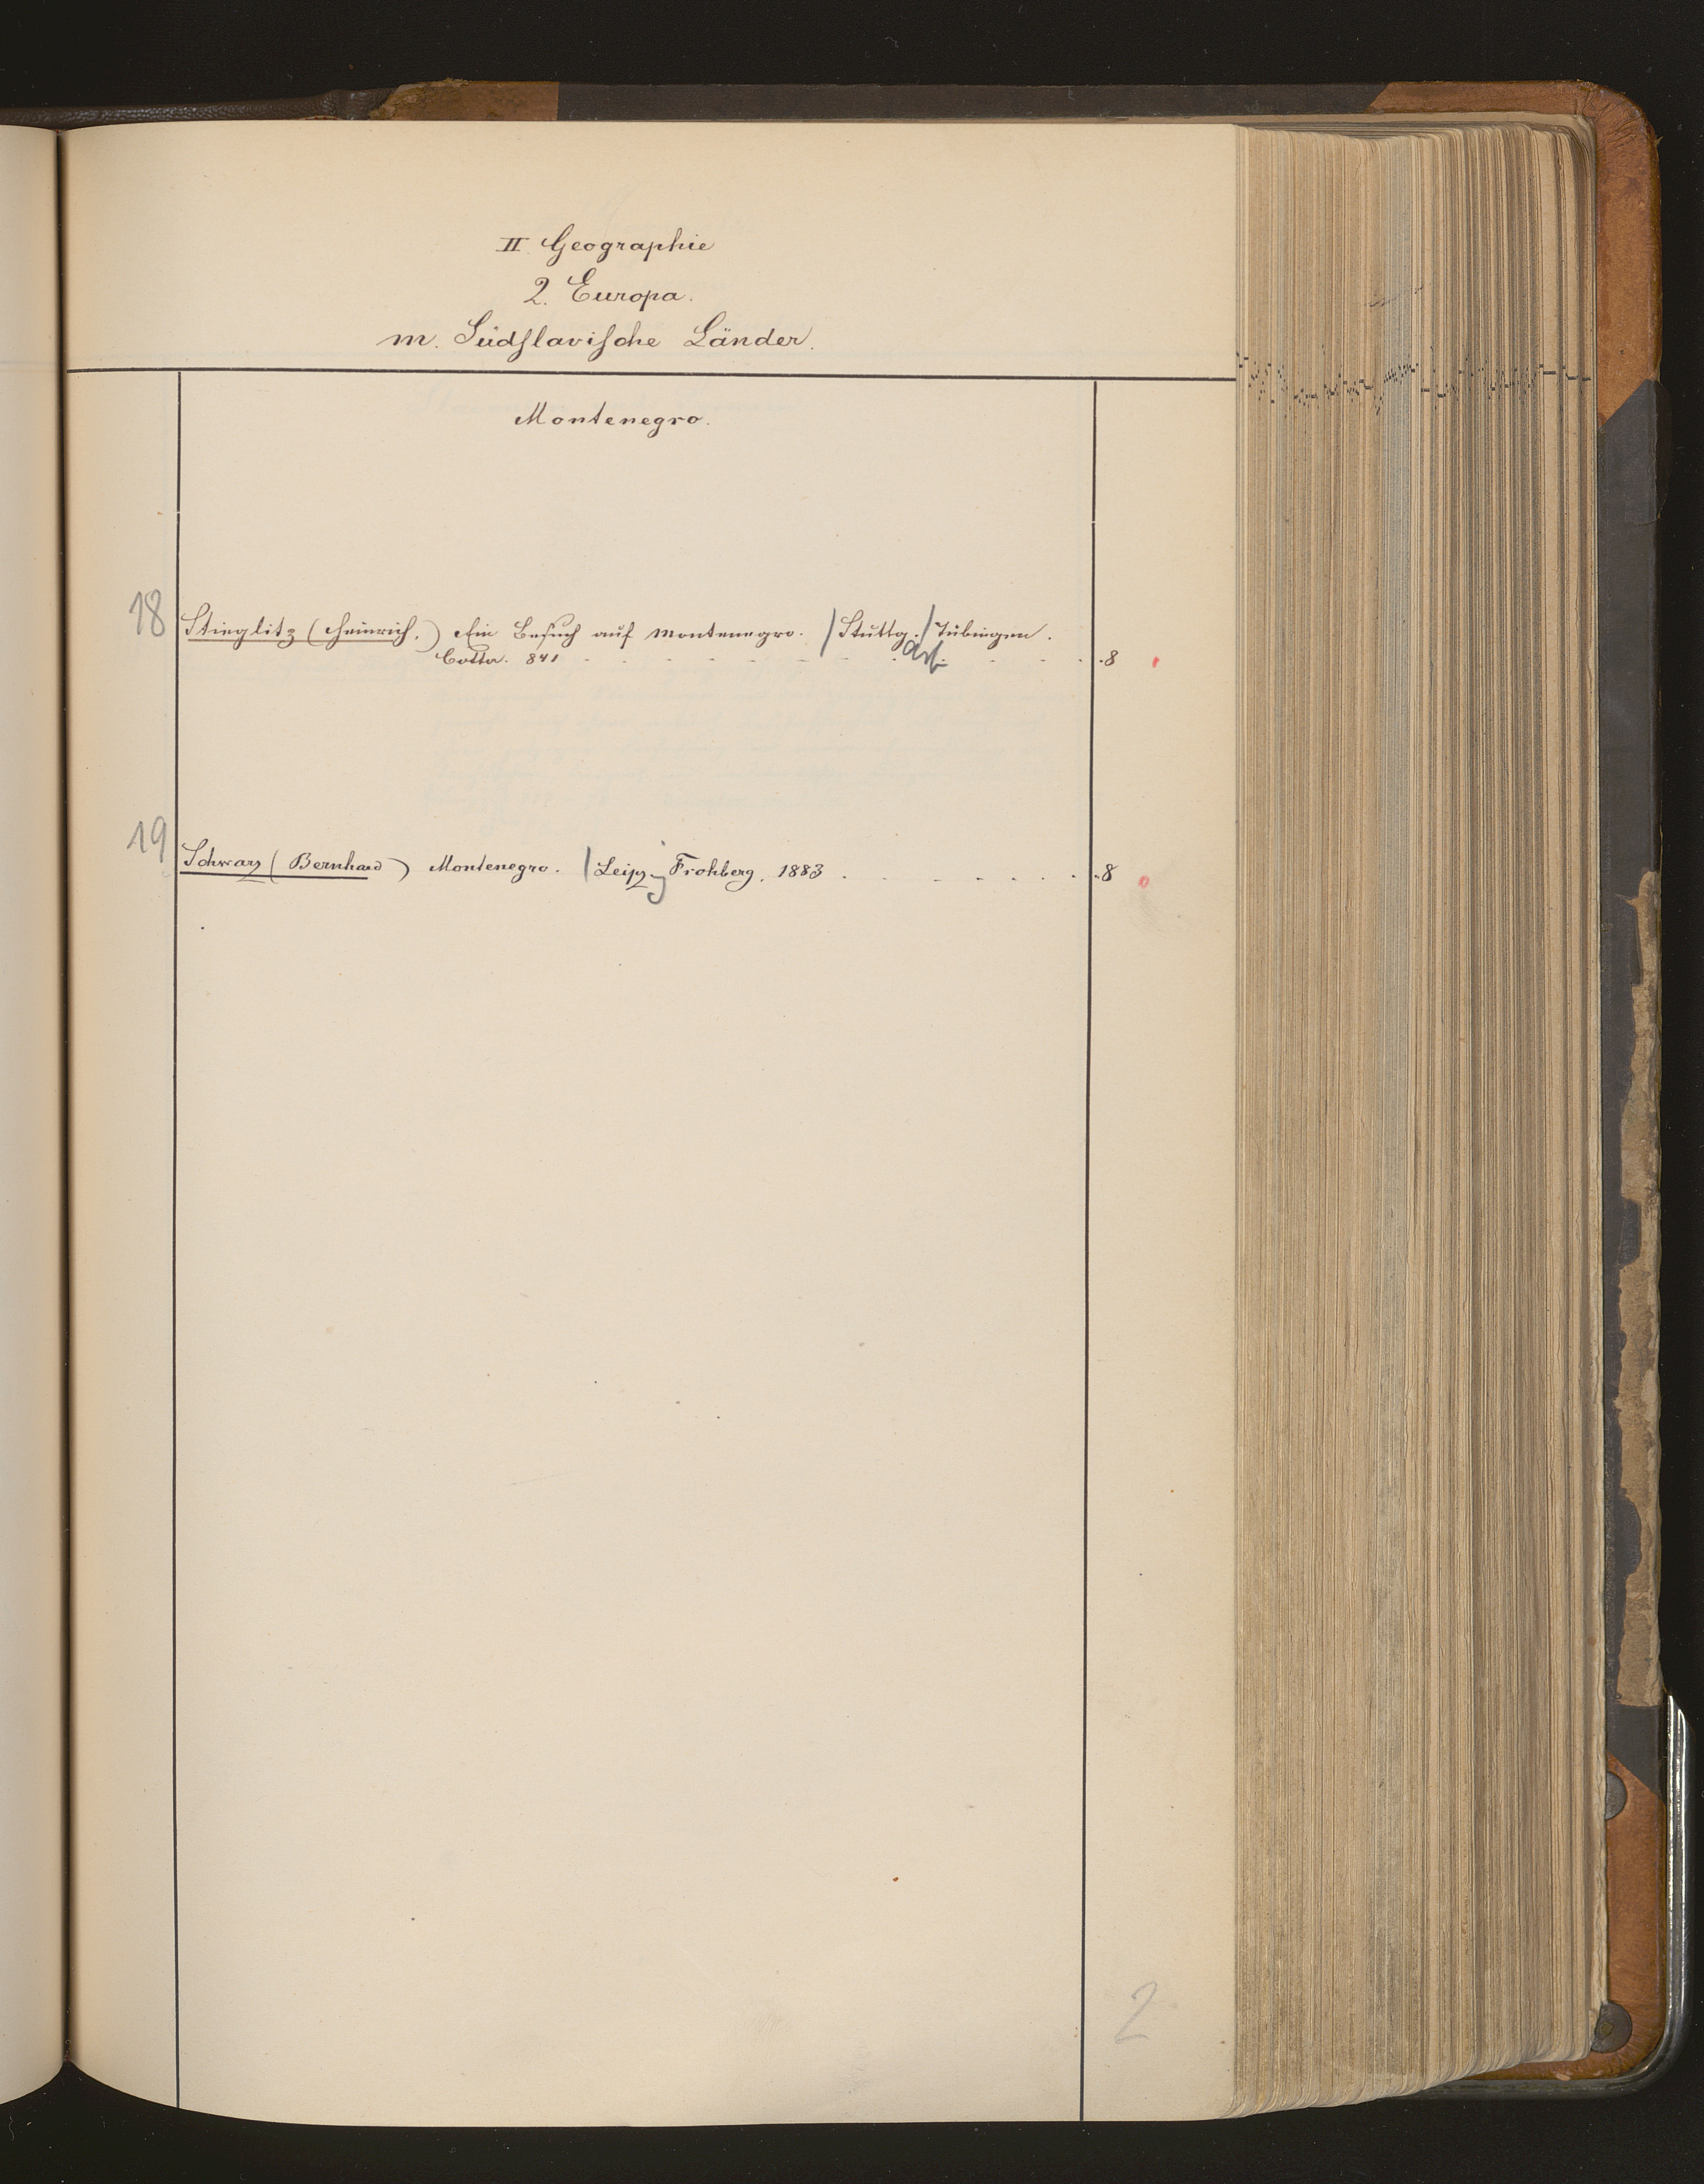 II. Geographie
2. Europa.
m. Südslavische Länder.
Montenegro.
18 Stieglitz (Heinrich.) Ein Besuch auf Montenegro. / Stuttg. / Tübingen.
art
Cotta. 841 . . . . . . . . . . . 8
19 Schwarz (Bernhard) Montenegro. / Leipzig Frohberg. 1883 . . . . . . . 8
2